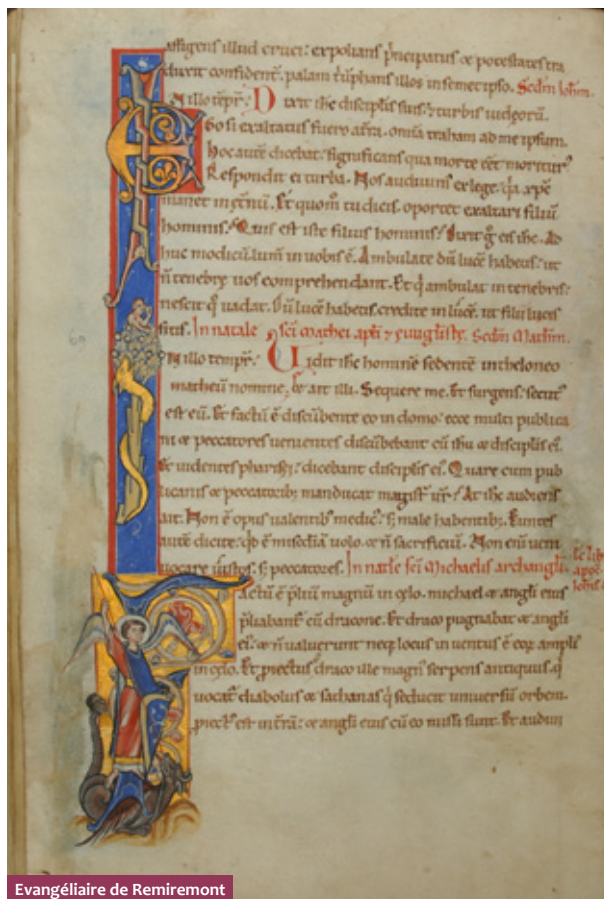 affigens illud cruci: expolians p̄ncipatus ⁊ potestates tra
duxit confident̄. palam t̄ūphans illos in semet ipso. Sedm̄ Ioh̄m.
N illo tēpr̄. Dixit ih̄c discipĺis suis. ⁊ turbis iudeorū.
Ego si exaltatus fuero a t̄ra. om̄ia traham ad me ipsum.
hoc autē dicebat. significans qua morte eēt moritur᷒
Respondit ei turba. Nos audiuim᷒ ex lege. q̄a xp̄c
manet in et̄nū. Et quom̄ tu dicis. oportet exaltari filiū
hominis? Quis est iste filius hominis? Dixit ḡ eis ih̄c. Ad
huc modicū lum̄ in uobis ē. Ambulate dū lucē habetis. ut
n̄ tenebrę uos comprehendant. Et q̄ ambulat in tenebris.
nescit q̊ uadat. Dū lucē habetis. credite in lucē. ut filii lucis
sitis. In natale sc̄i Mathei apl̄i ⁊ euuglistę. Sedm̄ Mathm̄.
N illo tempr̄. Uidit ih̄c hominē sedentē in theloneo
matheū nomine. ⁊ ait illi. Sequere me. Et surgens. secut᷒
est eū. Et factū ē discūbente eo in domo. ecce multi publica
ni ⁊ peccatores uenientes discūbebant cū ih̄u ⁊ discipĺis ei᷒.
Et uidentes pharisęi. dicebant discipĺis ei᷒. Quare cum pub
licanis ⁊ peccatorib; manducat magist̄ ur̄? At ih̄c audiens
ait. Non ē opus ualentib; medic᷒. s; male habentib;. Euntes
autē discite. qd̄ ē miscdīā uolo. ⁊ n̄ sacrificiū. Non eni ueni
uocare iustos. s; peccatores. In natłe sc̄i Michaelis archangłi.
le lib
apoc
Ioh̄is
Factū ē p̄liū magnū in cęlo. michael ⁊ angłi eius
p̄liabant̄ cū dracone. Et draco pugnabat ⁊ angłi
ei᷒. ⁊ n̄ ualuerunt neq; locus inuentus ē eoꝝ ampli᷒
in cęlo. Et p̄iectus draco ille magn᷒ serpens antiquus. q̄
uocat̄ diabolus ⁊ sathanas q̄ seducit uniuersū orbem.
p̄iect᷒ est in t̄rā. ⁊ angłi eius cū eo missi sunt. Et audiui
Evangéliaire de Remiremont